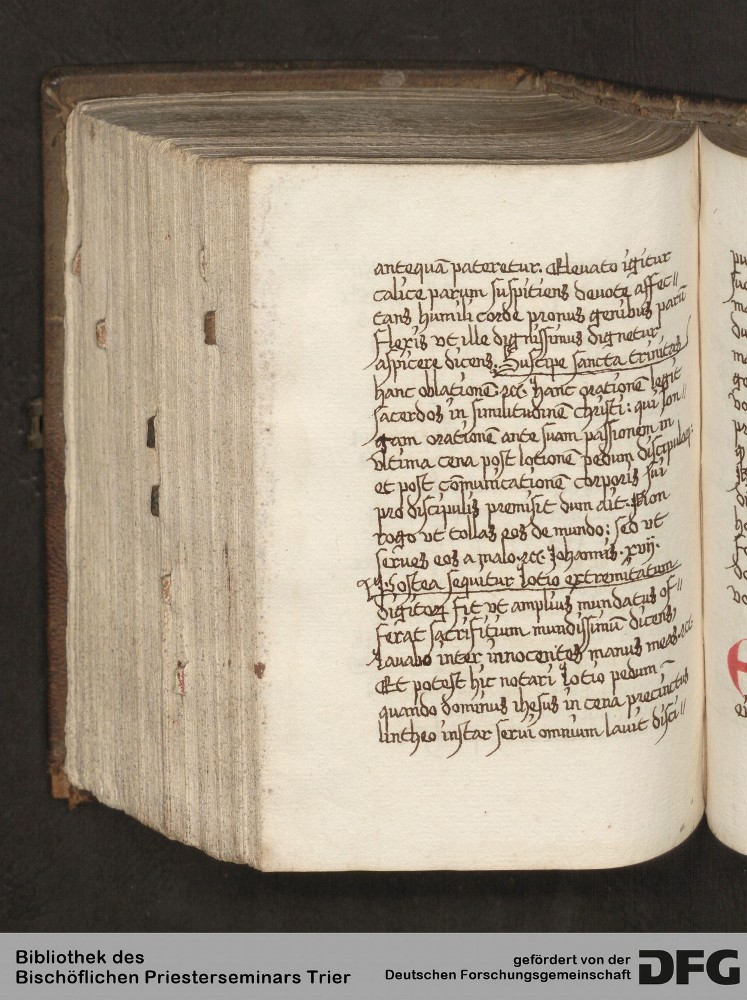 antequā pateretur. Eleuato igitur
calice parum suspitiens deuote affec//
tans humili corde pronus genibus parū
flexis vt ille dignissimus dignetur
aspicere dicens. Suscipe sancta trinitas
hanc oblationē ꝛcꝭ. hanc orationē legit
sacerdos in similitudinē christi: qui lon//
gam orationē ante suam passionem in
vltima cena post lotionē pedum discipuloꝝ:
et post cōmunicationē corporis sui
pro discipulis premisit dum ait. Non
rogo vt tollas eos de mundo; sed vt
serues eos a malo. ꝛcꝭ. Johannis. xvij.
Postea sequitur lotio extremitatum
digitoꝝ fit vt amplius mundatus of//
ferat sacrifitium mundissimū dicens,
lauabo inter innocentes manus meas. ꝛcꝭ.
Et potest hic notari lotio pedum
quando dominus ihesus in cena precinctus
lintheo instar serui omnium lauit disci//
Bibliothek des
Bischöflichen Priesterseminars Trier
gefördert von der
Deutschen Forschungsgemeinschaft
DFG